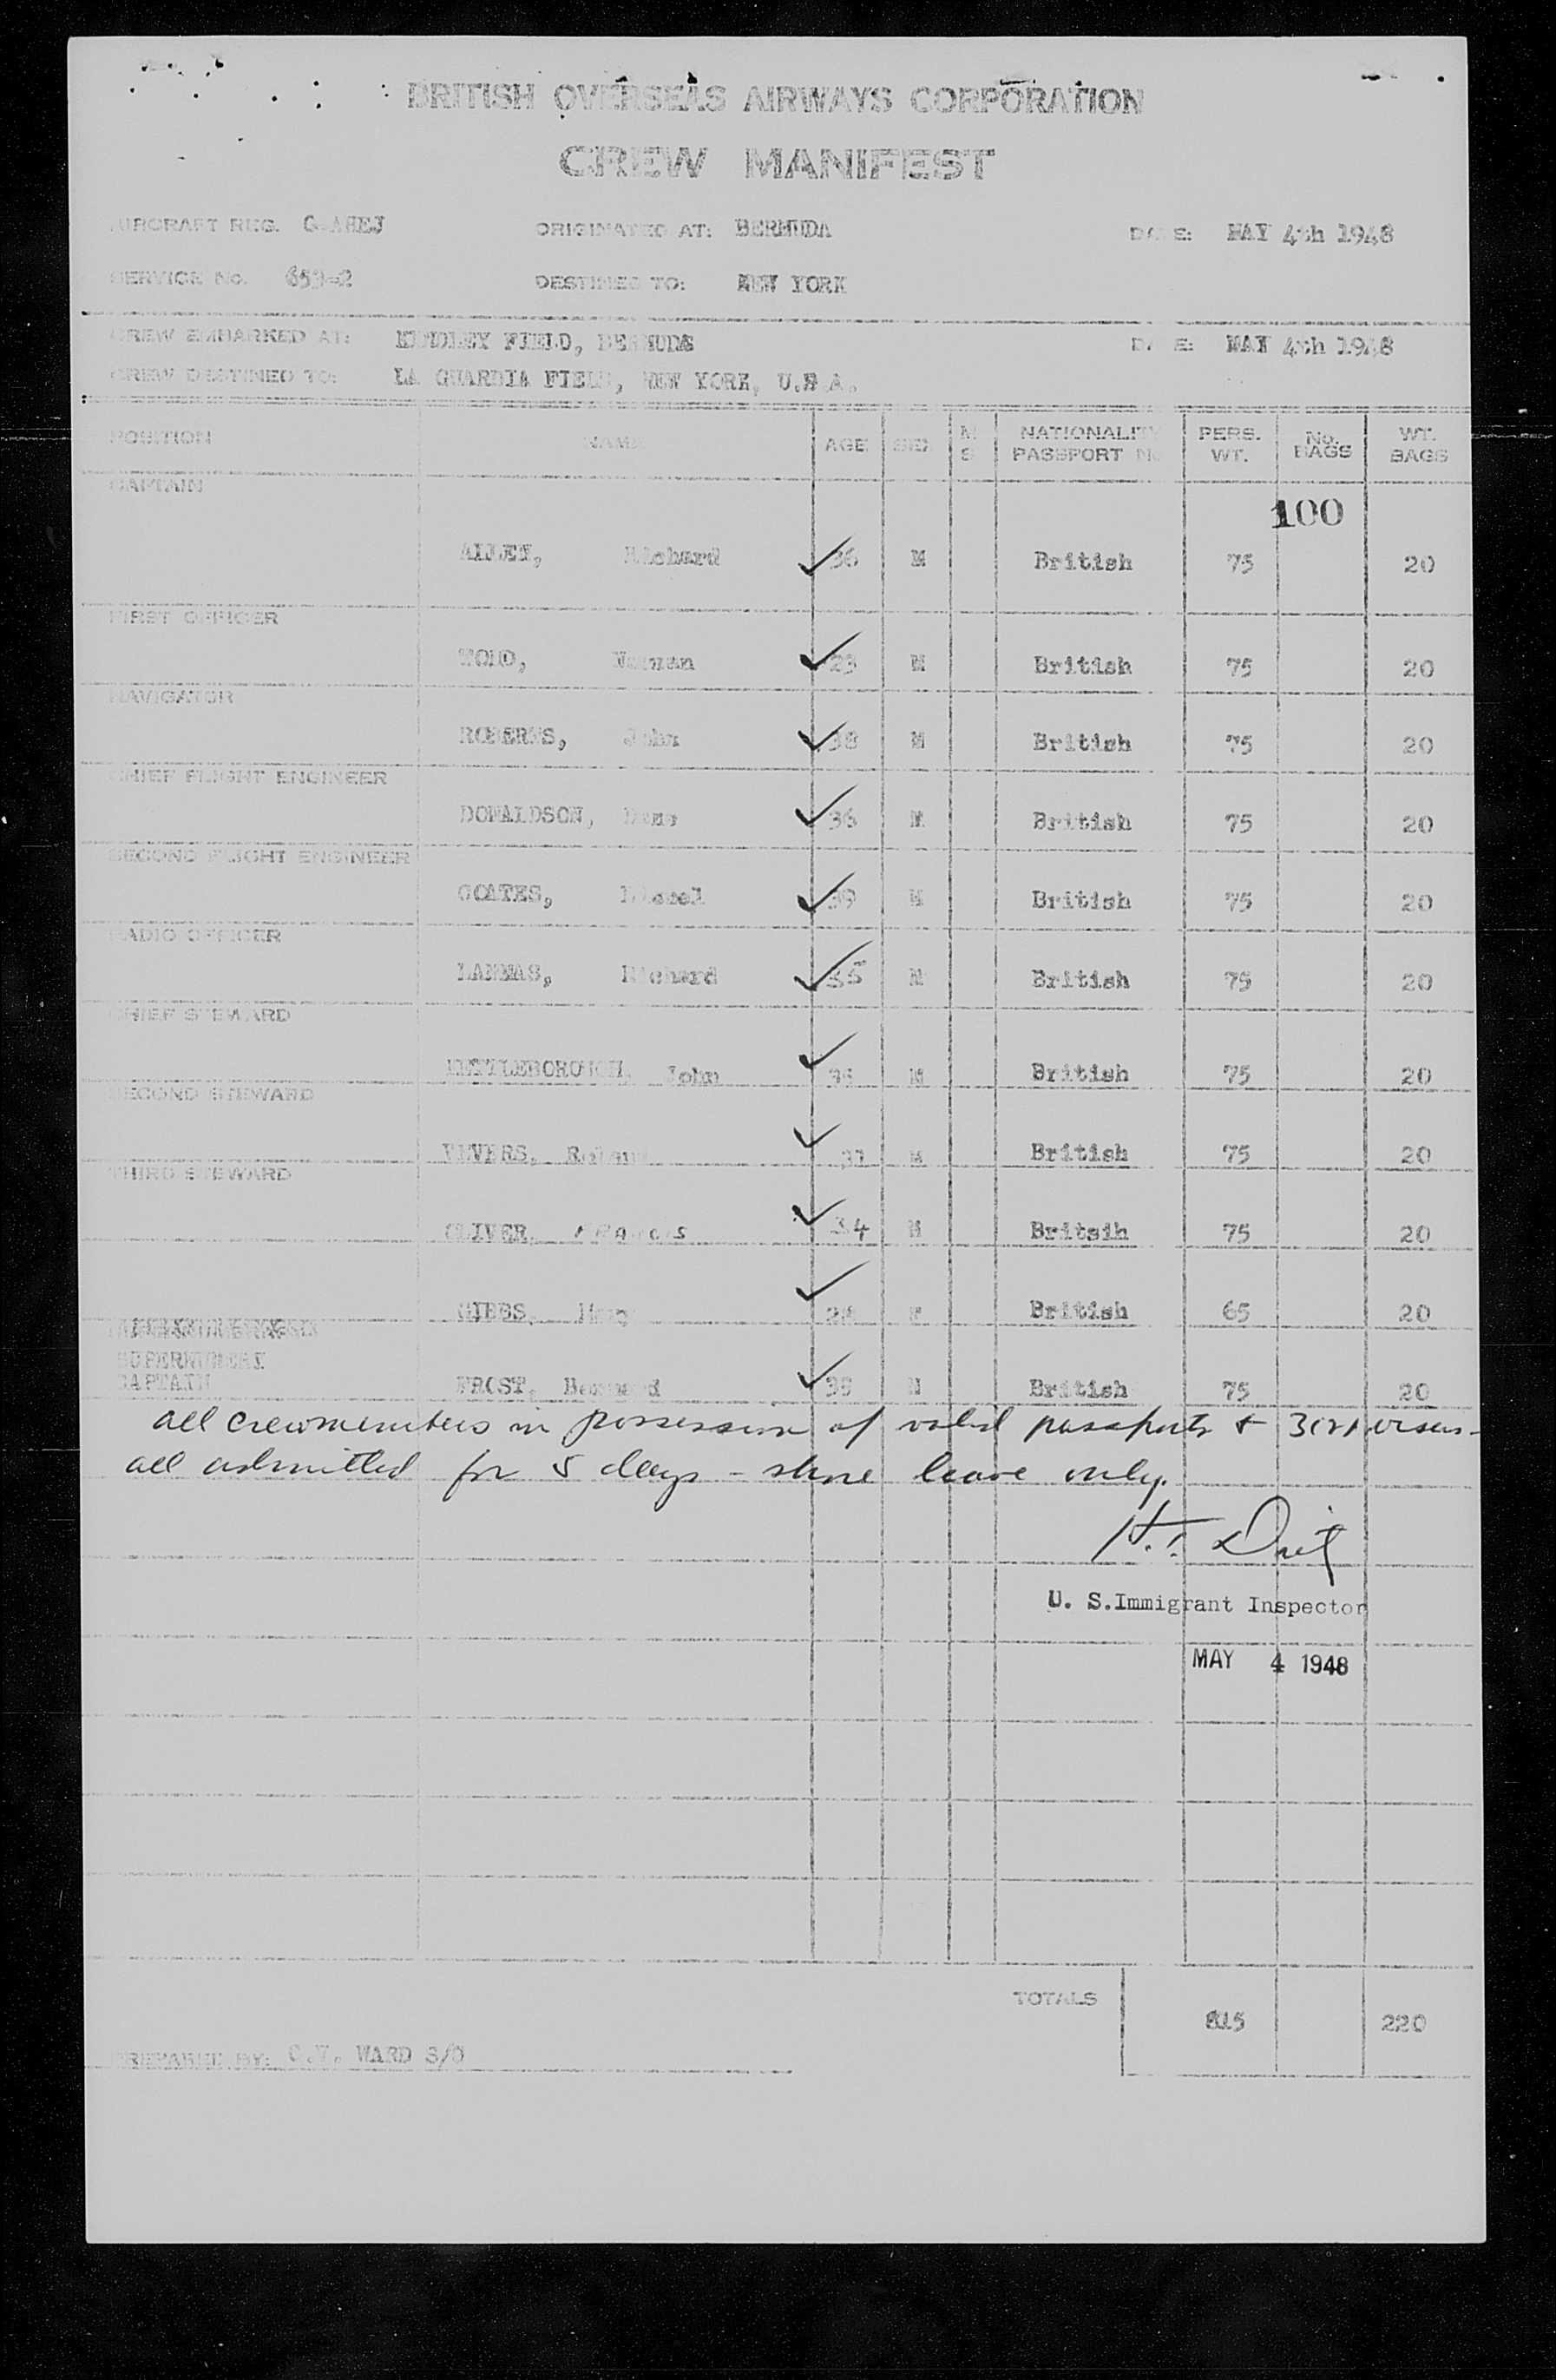 BRITISH OVERSEAS AIRWAYS CORPORATION
CREW MANIFEST
AIRCRAFT REG. G-AHEJ ORIGINATED AT: BERMUDA DATE: MAY 4th 1948
SERVICE No. DESTINED TO: NEW YORK
CREW EMBARKED AT: KINDLEY FIELD, BERMUDA DATE: MAY 4th 1948
CREW DESTINED TO: LA GUARDIA FIELD, NEW YORK, U.S.A.
POSITION NAME AGE M S NATIONALITY PASSPORT No PERS. WT. No. BAGS WT. BAGS
CAPTAIN
100
Richard 36 M British 75 20
FIRST OFFICER
TODD, Norman 23 M British 75 20
NAVIGATOR
ROBERTS, John 38 M British 75 20
CHIEF FLIGHT ENGINEER
DONALDSON, 36 M British 75 20
SECOND FLIGHT ENGINEER
COATES, 39 M British 75 20
RADIO OFFICER
Richard 35 M British 75 20
CHIEF STEWARD
John M British 75 20
SECOND STEWARD
VEVERS, M British 75 20
THIRD STEWARD
OLIVER, 34 M Britsih 75 20
GIBBS, British 65 20
SUPERNUMERARY
CAPTAIN
FROST, Bernard M British 75 20
all crewmembers in possession of valid passports & 3(2) visas -
all admitted for 5 days - shore leave only.
U. S.Immigrant Inspector
MAY 4 1948
TOTALS 815 220
PREPARED BY: WARD S/O